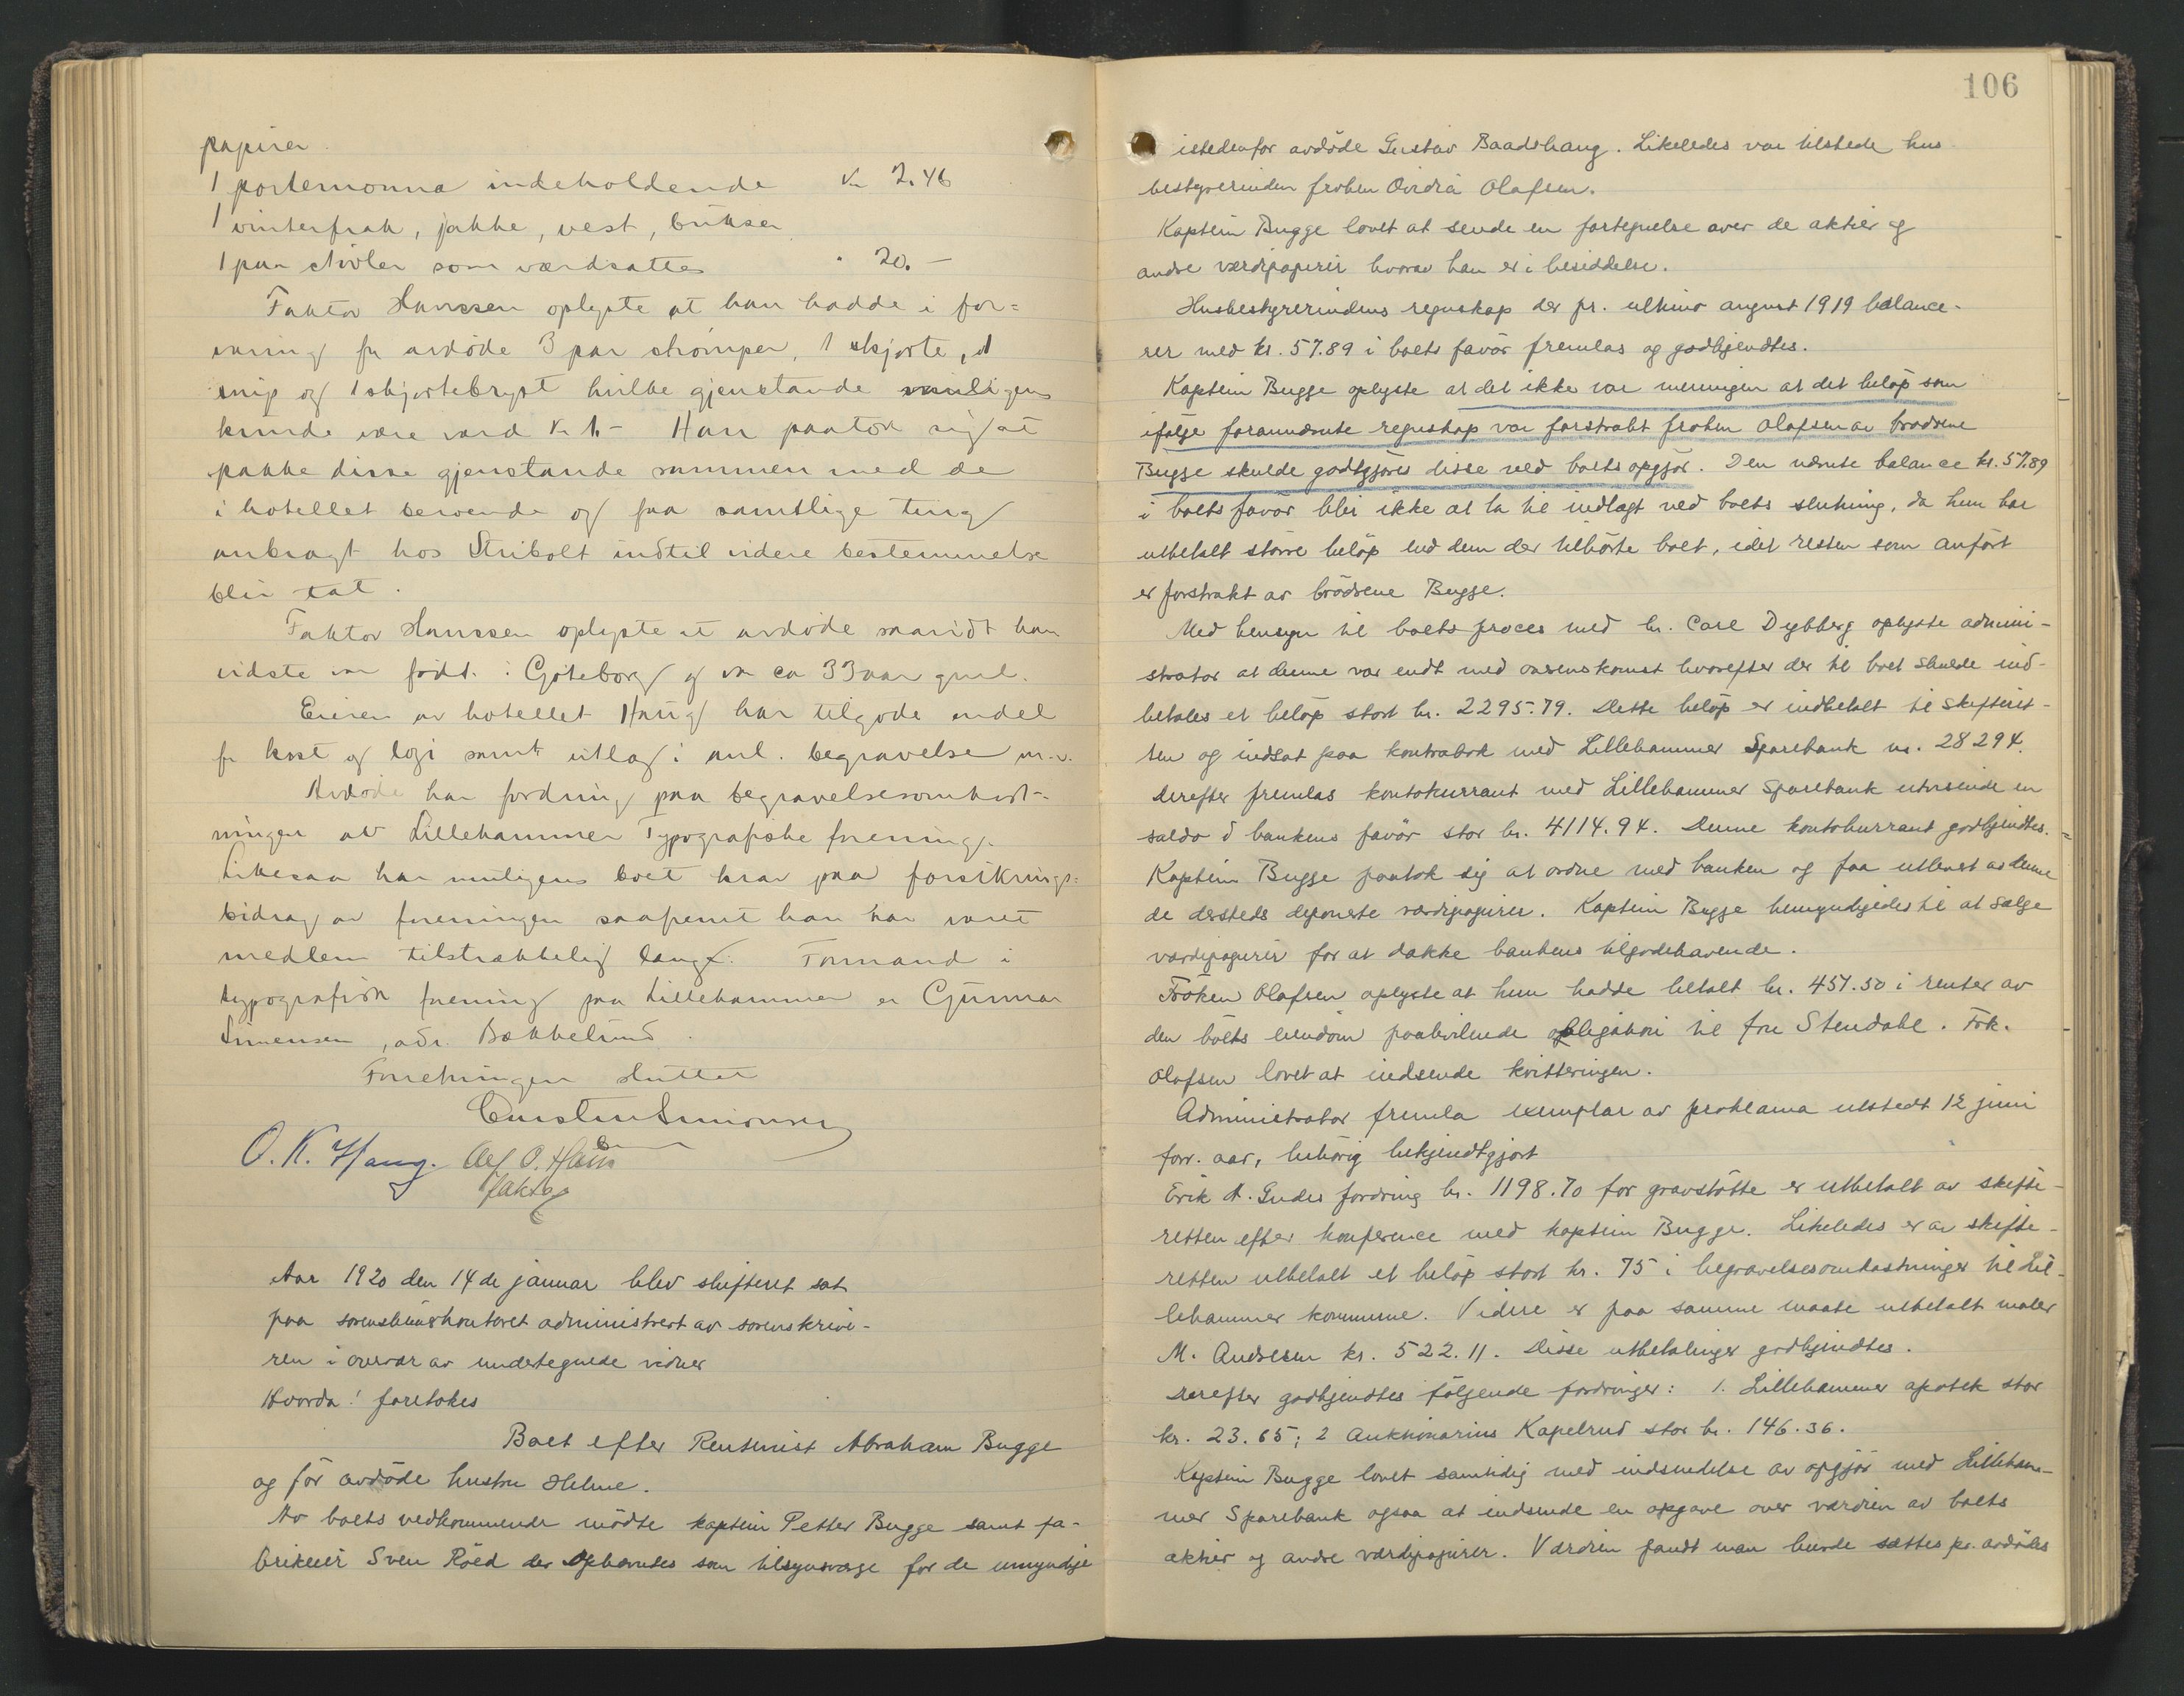 papirer.
1 portemonna indeholdende kr 2.46
1 vinterfrak, jakke, vest, bukser
1 par støvler som værdsattes " 20.-
Faktor Hanssen oplyste at han hadde i for=
varing fra avdøde 3 par strømper, 1 skjorte, 1
snip og 1 skjortebryst hvilke gjenstande muligens
kunde være værd kr 1.- Han paatok sig at
pakke disse gjenstande sammen med de
i hotellet beroende og faa samtlige ting
anbragt hos Stribolt indtil videre bestemmelse
blir tat.
Faktor Hanssen oplyste at avdøde saavidt han
vidste var født i Gøteborg og var ca 33 aar gml.
Eieren av hotellet Haug har tilgode endel
for kost og logi samt utlæg i anl. begravelse m.v.
Avdøde har fordring paa begravelsesomkost-
ninger av Lillehammer Typografiske forening.
Likesaa har muligens boet krav paa forsikrings=
bidrag av foreningen saafremt han har været
medlem tilstrækkelig længe. Formand i
typografisk forening paa Lillehammer er Gunnar
Simensen, adr. Bækkelund.
Forretningen sluttet
O. K. Haug. Alf O. Hanssen
faktor
Aar 1920 den 14de januar blev skifteret sat
paa sorenskriverkontoret administrert av sorenskrive-
ren i overvær av undertegnede vidner
Hvorda! foretokes
Boet efter Rentenist Abraham Bugge
og før avdøde hustru Helene.
For boets vedkommende mødte kaptein Petter Bugge samt fa-
brikeier Sven Röed der opnævntes som tilsynsværge for de umyndige
106
istedenfor avdöde Gustav Baadshaug. Likeledes var tilstede hus
bestyrerinden fröken Ovidia Olafsen.
Kaptein Bugge lovet at sende en fortegnelse over de aktier og
andre værdipapirer hvorav han er i besiddelse.
Husbestyrerindens regnskap der pr. ultimo august 1919 balance-
rer med kr. 57.89 i boets favör fremlas og godkjendtes.
Kaptein Bugge oplyste at det ikke var meningen at det belöp som
ifölge forannævnte regnskap var forstrakt fröken Olafsen av brödrene
Bugge skulde godtgjöres disse ved boets opgjör. Den nævnte balance kr. 57.89
i boets favör blir ikke at ta til indtægt ved boets slutning, da hun har
utbetalt större belöp end dem der tilhörte boet, idet resten som anfört
er forstrakt av brödrene Bugge.
Med hensyn til boets proces med hr. Carl Dybberg oplyste admini-
strator at denne var endt med overenskomst hvorefter der til boet skulde ind-
betales et belöp stort kr. 2295.79. Dette belöp er indbetalt til skifteret-
ten og indsat paa kontrabok med Lillehammer Sparebank nr. 28294.
Derefter fremlas kontokurrant med Lillehammer Sparebank utvisende en
saldo i bankens favör stor kr. 4114.94. Denne kontokurrant godkjendtes.
Kaptein Bugge paatok sig at ordne med banken og faa utlevert av denne
de dersteds deponerte værdipapirer. Kaptein Bugge bemyndigedes til at sælge
værdipapirer for at dække bankens tilgodehavende.
Fröken Olafsen oplyste at hun hadde betalt kr. 457.50 i renter av
den boets eiendom paahvilende obligation til fru Stendahl. Frk.
Olafsen lovet at indsende kvitteringen.
Administrator fremla exemplar av proklama utstedt 12 juni
forr. aar, behörig bekjendtgjort
Erik A. Gudes fordring kr. 1198.70 for gravstötte er utbetalt av skifte-
retten efter konference med kaptein Bugge. Likeledes er av skifte-
retten utbetalt et belöp stort kr. 75 i begravelsesomkostninger til Lil-
lehammer kommune. Videre er paa samme maate utbetalt maler
M. Andresen kr. 522.11. Disse utbetalinger godkjendtes.
Derefter godkjendtes fölgende fordringer: 1. Lillehammer apotek stor
kr. 23.65; 2 Auktionarius Kapelrud stor kr. 146.36.
Kaptein Bugge lovet samtidig med indsendelse av opgjör med Lilleham-
mer Sparebank ogsaa at indsende en opgave over værdien av boets
aktier og andre værdipapirer. Værdien fandt man burde sættes pr. avdödes